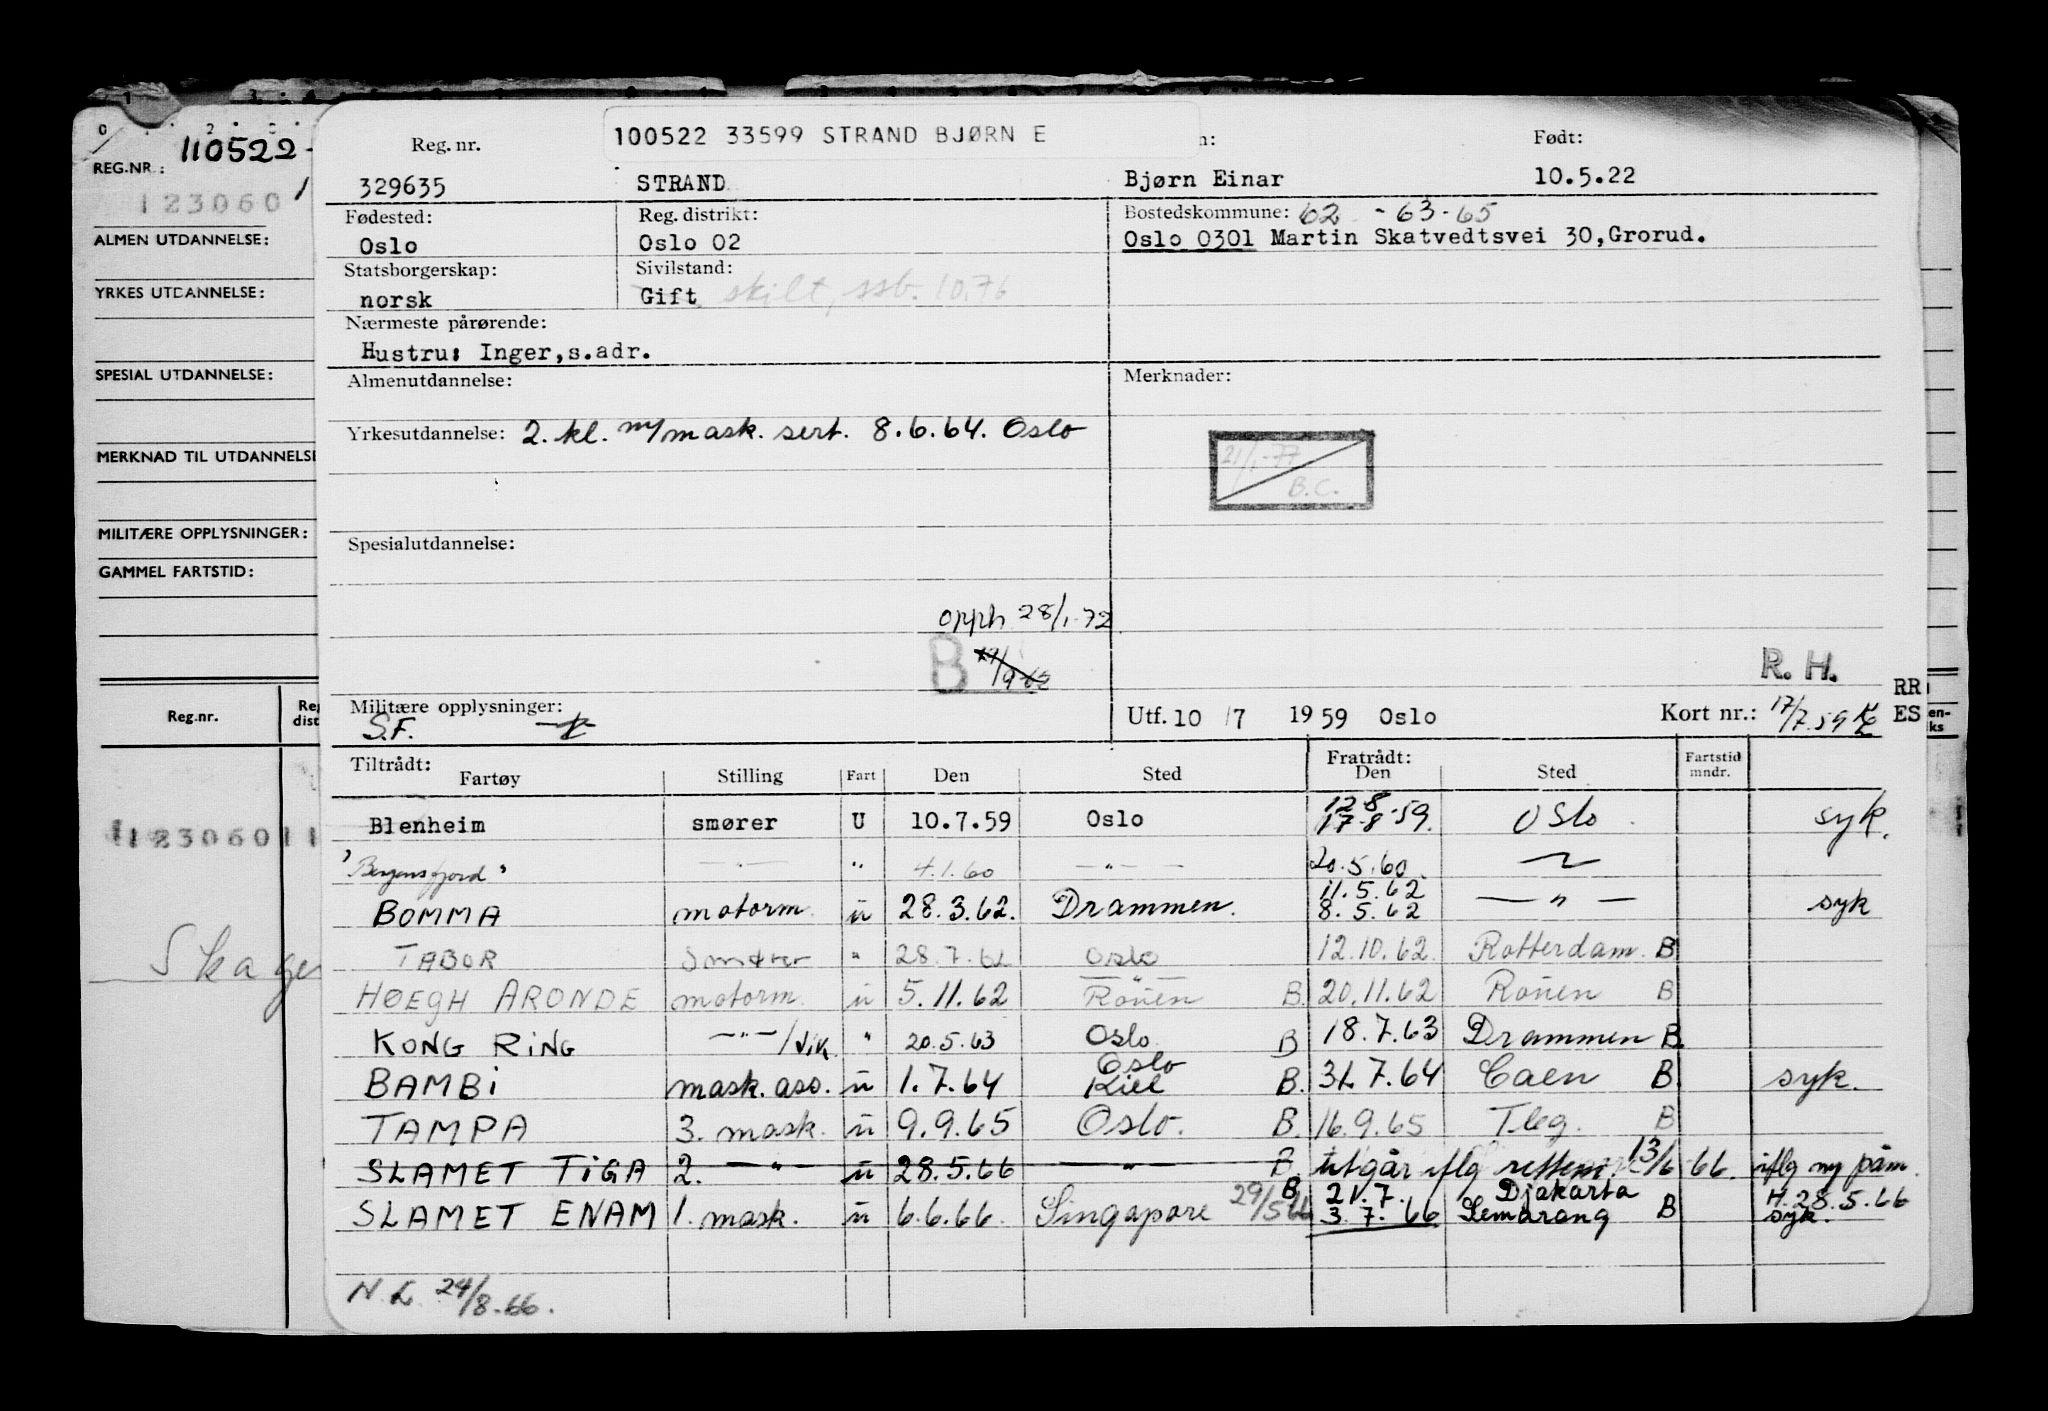 REG.NR.: 110522-
1230601
ALMEN UTDANNELSE:
YRKES UTDANNELSE:
SPESIAL UTDANNELSE:
MERKNAD TIL UTDANNELSE
MILITÆRE OPPLYSNINGER:
GAMMEL FARTSTID:
Reg.nr.
Reg
dist
12306011
Skage
100522 33599 STRAND BJØRN E
Reg. nr. n: Født:
329635 STRAND Bjørn Einar 10.5.22
Fødested: Reg. distrikt: Bostedskommune: 62 - 63-65
Oslo Oslo 02 Oslo 0301 Martin Skatvedtsvei 30,Grorud.
Statsborgerskap: Sivilstand:
norsk Gift skilt, ssb. 10.76
Nærmeste pårørende:
Hustru: Inger,s.adr.
Almenutdannelse: Merknader:
Yrkesutdannelse: 2. kl. m/mask. sert. 8.6.64. Oslo
21/1-77
B.C.
Spesialutdannelse:
opph 28/1-72
B
R. H.
Militære opplysninger: Utf. 10 /7 1959 Oslo Kort nr.: 17/7.59
S.F.
RR
ES
en-
ks
Tiltrådt: Fratrådt: Fartstid
Fartøy Stilling Fart Den Sted Den Sted mndr.
12-8
Blenheim smører U 10.7.59 Oslo 17-8-59. Oslo syk.
"Bergensfjord" —"— " 4.1.60 —"— 20.5.60
11.5.62
BOMMA motorm. u 28.3.62. Drammen. 8.5.62 —"— syk
TABOR Smører " 28.7.62 Oslo 12.10.62. Rotterdam. B
—"—
HØEGH ARONDE motorm. u 5.11.62 Roüen B. 20.11.62 Roüen B
KONG RING —"—/vik. " 20.5.63 Oslo B 18.7.63 Drammen B.
Oslo
BAMBI mask. ass. u 1.7.64 Kiel B. 31.7.64 Caen B. syk.
TAMPA 3. mask. u 9.9.65 Oslo. B. 16.9.65 Tbg. B
SLAMET TIGA 2. —"— u 28.5.66 —"— B. utgår iflg rettem. 13/6-66. iflg ny påm.
B 21.7. Djakarta H. 28.5.66
SLAMET ENAM 1. mask. u 6.6.66. Singapore 29/5 66 3.7.66 Semarang B syk.
N.L. 24/8.66.